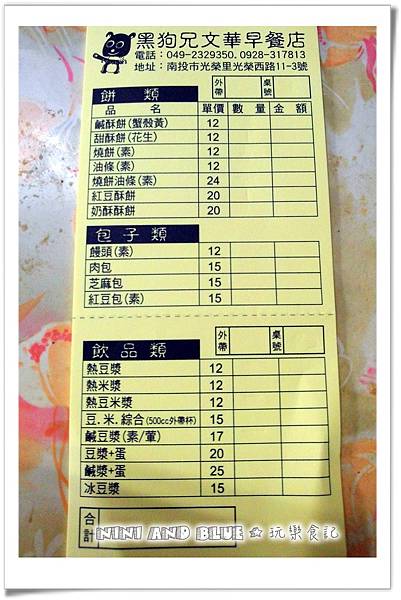 黑狗兄文華早餐店
電話：049-2329350. 0928-317813
地址：南投市光榮里光榮西路11-3號
餅類 外帶 桌號
品名 單價 數量 金額
鹹酥餅(蟹殼黃) 12
甜酥餅(花生) 12
燒餅(素) 12
油條(素) 12
燒餅油條(素) 24
紅豆酥餅 20
奶酥酥餅 20
包子類
饅頭(素) 12
肉包 15
芝麻包 15
紅豆包(素) 15
飲品類 外帶 桌號
熱豆漿 12
熱米漿 12
熱豆米漿 12
豆.米.綜合(500cc外帶杯) 15
鹹豆漿(素/葷) 17
豆漿+蛋 20
鹹漿+蛋 25
冰豆漿 15
合計
NINI AND BLUE☆玩樂食記